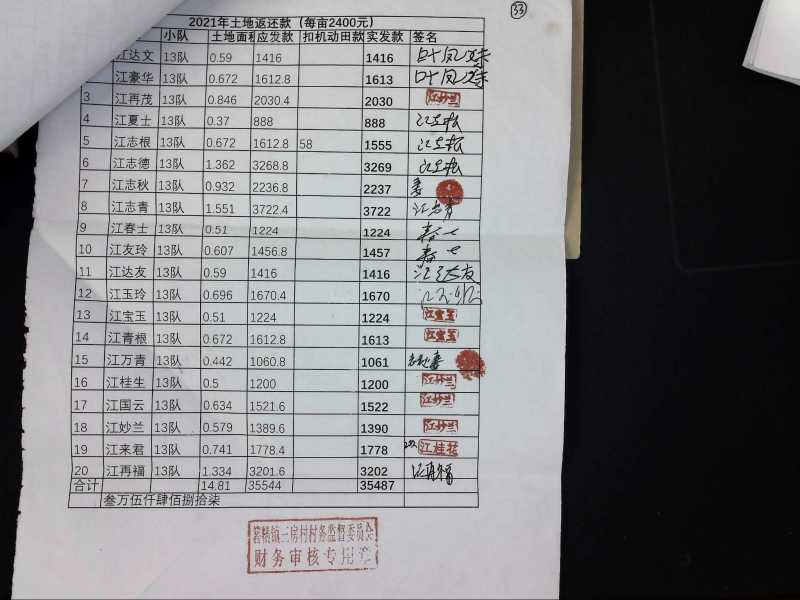 33
2021年土地返还款（每亩2400元）
小队 土地面积 应发款 扣机动田款 实发款 签名
江达文 13队 0.59 1416 1416
江豪华 13队 0.672 1612.8 1613
3 江再茂 13队 0.846 2030.4 2030 江妙兰
4 江夏士 13队 0.37 888 888
5 江志根 13队 0.672 1612.8 58 1555
6 江志德 13队 1.362 3268.8 3269
7 江志秋 13队 0.932 2236.8 2237 妻
8 江志青 13队 1.551 3722.4 3722 江志青
9 江春士 13队 0.51 1224 1224
10 江友玲 13队 0.607 1456.8 1457
11 江达友 13队 0.59 1416 1416 江达友
12 江玉玲 13队 0.696 1670.4 1670
13 江宝玉 13队 0.51 1224 1224 江宝玉
14 江青根 13队 0.672 1612.8 1613 江宝玉
15 江万青 13队 0.442 1060.8 1061
16 江桂生 13队 0.5 1200 1200 江妙兰
17 江国云 13队 0.634 1521.6 1522 江妙兰
18 江妙兰 13队 0.579 1389.6 1390 江妙兰
19 江来君 13队 0.741 1778.4 1778
20 江再福 13队 1.334 3201.6 3202 江再福
合计 14.81 35544 35487
叁万伍仟肆佰捌拾柒
镇三房村村务监督委员会
财务审核专用章